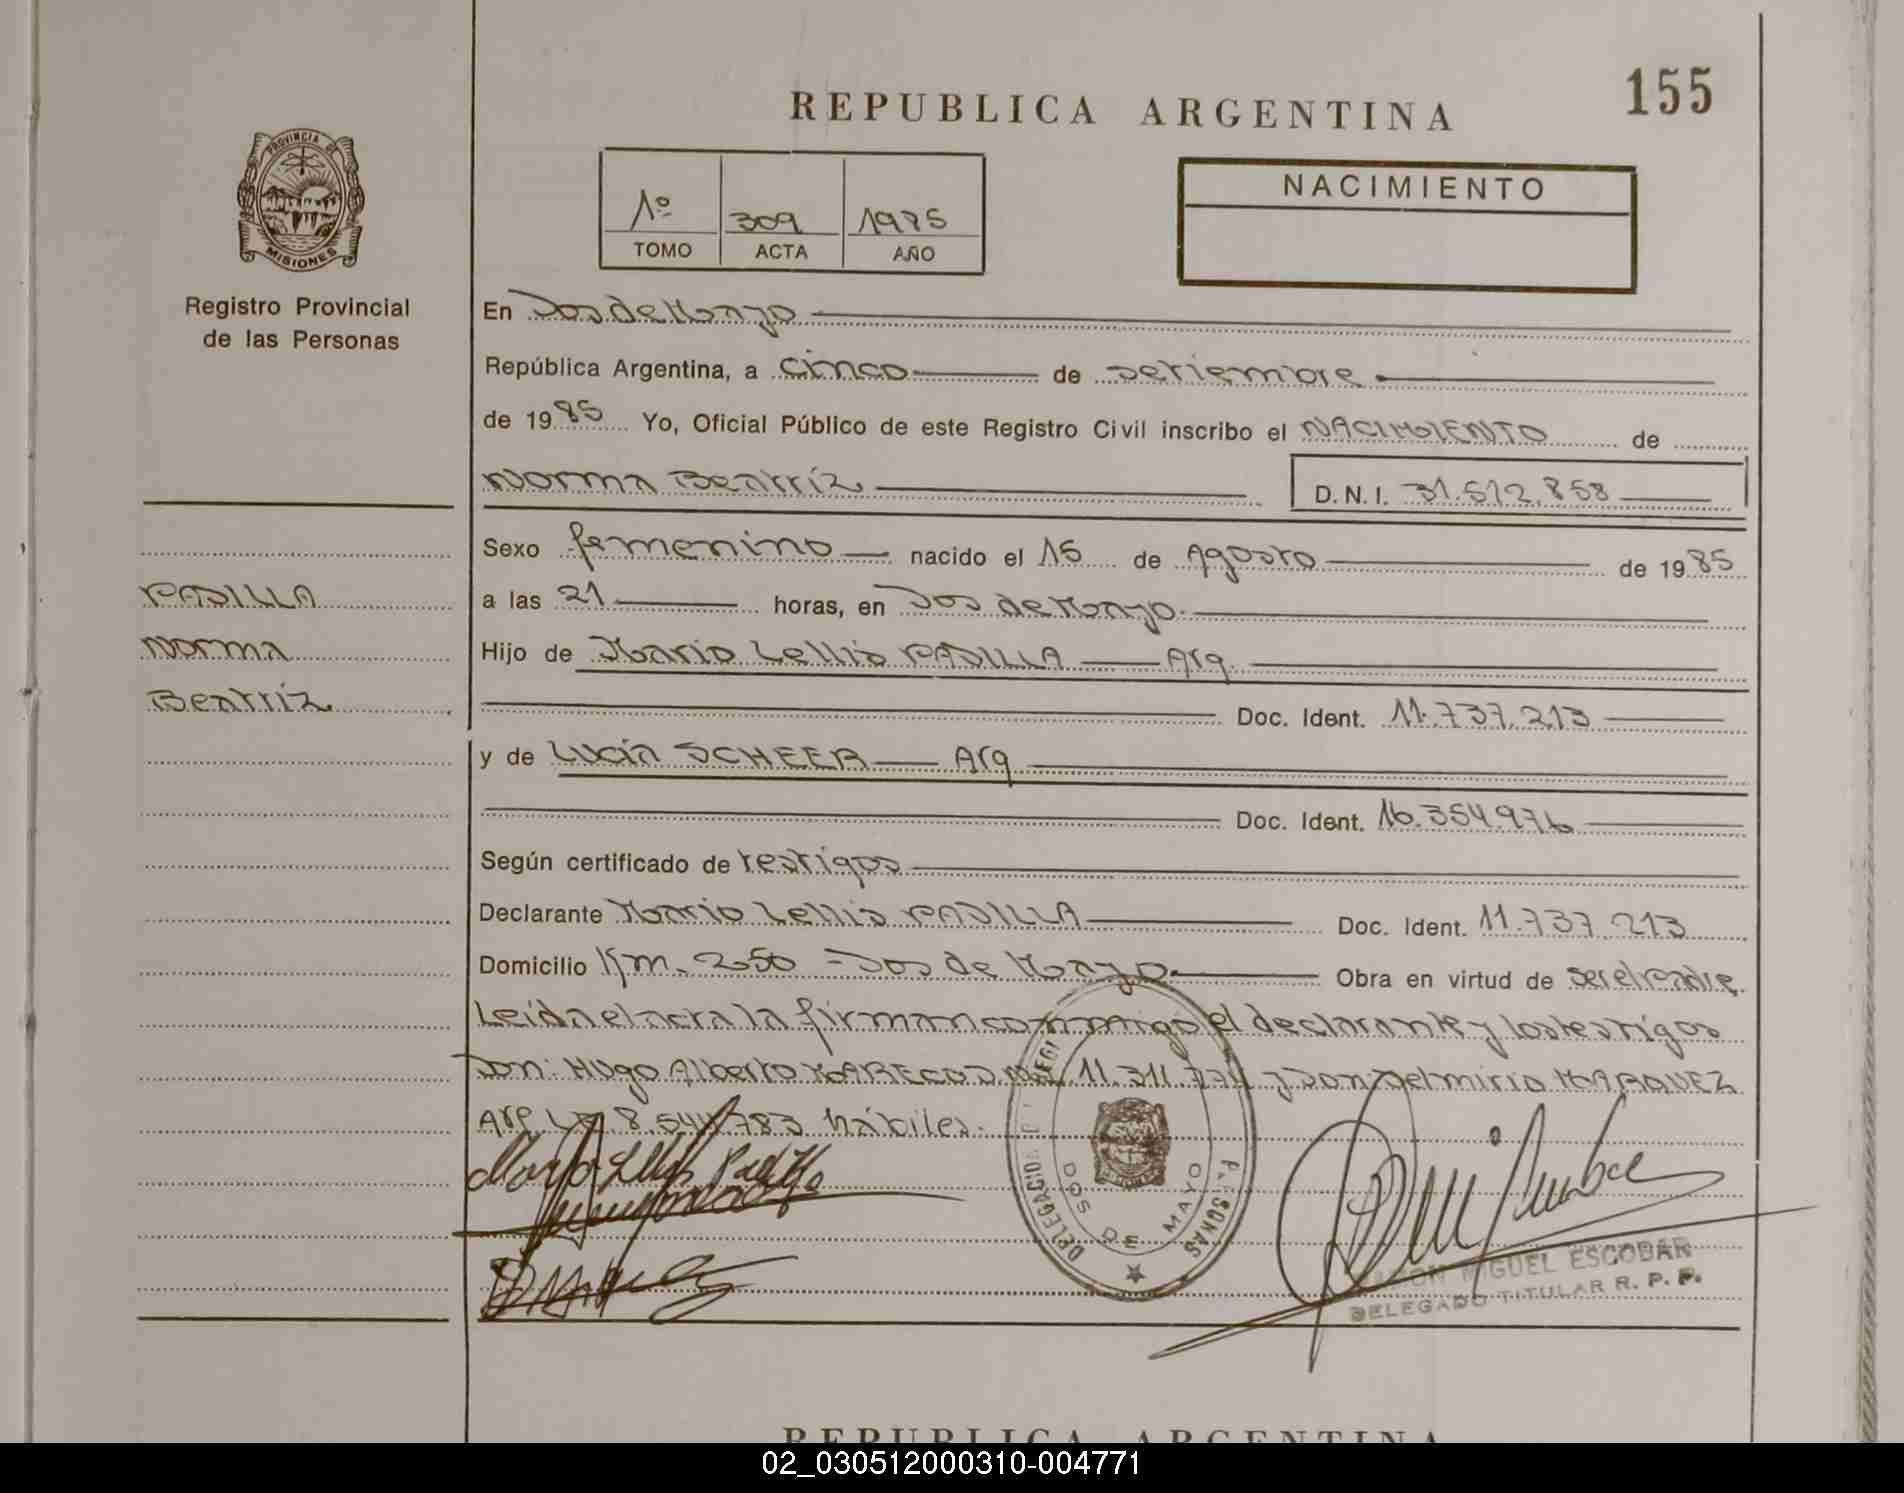 155
REPUBLICA ARGENTINA
PROVINCIA DE
MISIONES
Registro Provincial
de las Personas
1º 309 1985
TOMO ACTA AÑO
NACIMIENTO
En Dos de Mayo
República Argentina, a cinco de setiembre
de 1985 Yo, Oficial Público de este Registro Civil inscribo el NACIMIENTO de
Norma Beatríz D.N.I. 31.572.858
Sexo femenino nacido el 15 de Agosto de 1985
PADILLA
a las 21 horas, en Dos de Mayo.
Norma
Hijo de Mario Lellis PADILLA Arg.
Beatríz
Doc. Ident. 11.737.213
y de Lucía SCHEER Arg
Doc. Ident. 16.354.976
Según certificado de testigos
Declarante Mario Lellis PADILLA Doc. Ident. 11.737.213
Domicilio Km. 250 - Dos de Mayo. Obra en virtud de ser el padre.
Leída el acta la firman conmigo el declarante y los testigos
Don: Hugo Alberto MARECOS 11.311. y Don Delmirio MARQUEZ
Arg 8.54 783 hábiles.
DELEGACION PERSONAS
DOS DE MAYO
MIGUEL ESCOBAR
DELEGADO TITULAR R. P. P.
REPUBLICA ARGENTINA
02_030512000310-004771